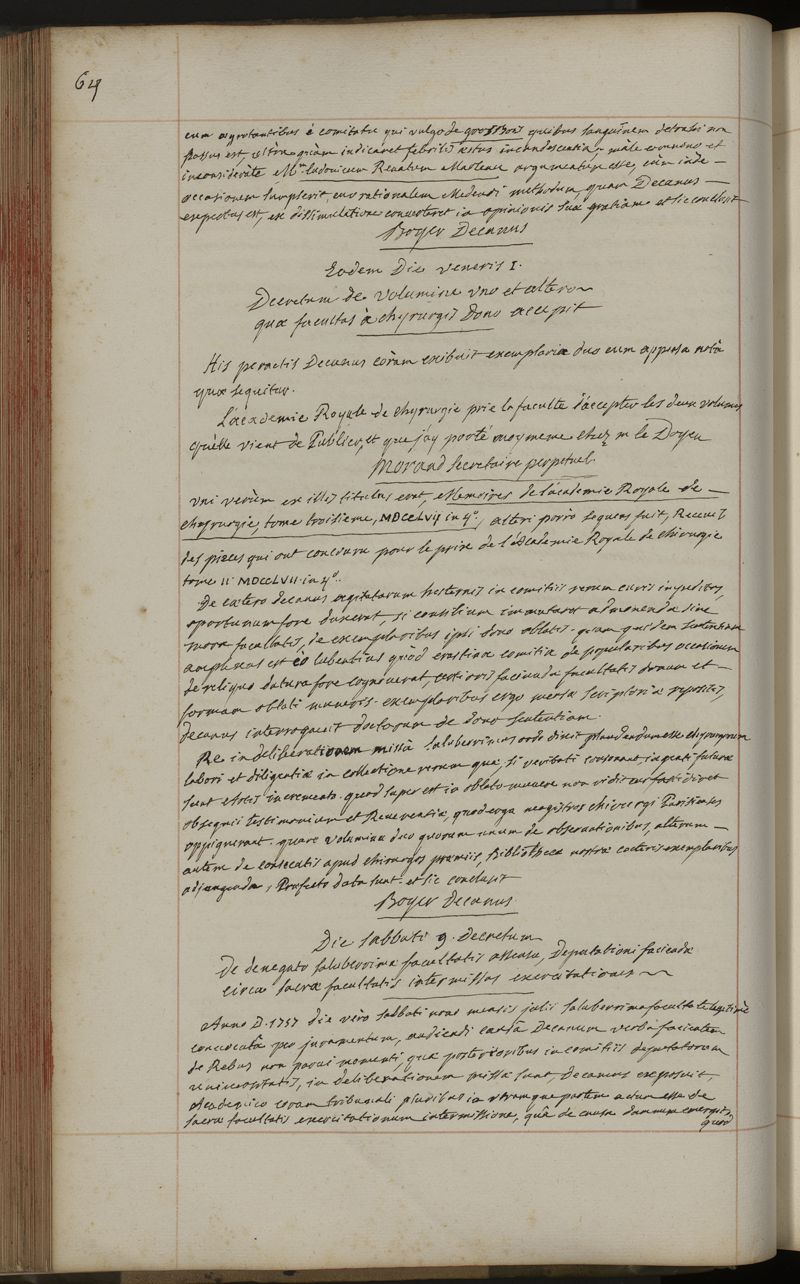 64
cum ægrotantibus è comitatu qui vulgo de quibus sanguinem detrahi non
passus est, ultrà quàm indicaret febrilis æstus incandescentia, malè et
inconsideratè Mrm Ludovicum Renatum Marteau argumentum esse, cùm inde
occasionem sumpserit, cur rationalem Medendi methodum, quam Decanus
expertus est, ex dissimulatione converteret in opinionis suæ gratiam et sic conclusit
Boyer Decanus
Eodem Die veneris 1.
Decretum de volumine uno et altero
quæ facultas à chyrurgis dono accepit
His peractis Decanus coràm exibuit exemplaria duo cum apposita notâ
quæ sequitur.
L'academie Royale de chyrurgie prie la faculté d'accepter les deux volumes
qu'elle vient de Publier, et que j'ay porté moy meme chez m le Doyen
Morand secretaire perpetuel.
Uni verùm ex illis titulus erat, Memoires de l'academie Royale de
chyrurgie, tome troisieme, MDCCLVII in 4o, alteri porrò sequens fuit, Recueil
des pieces qui ont concouru pour le prix de l'Academie Royale de chirurgie
tome II. MDCCLVII. in 4o.
De cætero decanus agitatarum hesternis in comitiis rerum curis impeditos,
oportunum fore duxerat, si consilium immutaret admonendæ sine
mora facultatis, de exemplaribus ipsi dono oblatis. quam quidem sententiam
amplexus est eò lubentius quòd crastina comitia de popularibus occasionem
de reliquo datura fore cognoverat, certioris faciendæ facultatis donum et
formam oblati muneris. exemplaribus ergo mensæ scriptoriæ repositis,
Decanus interrogavit doctorum de dono sententiam.
Re in deliberationem missâ saluberrimus ordo dixit plaudendum esse chyrurgorum
labori et diligentiæ in collectione rerum quæ, si veritati consonant, ingenti futuræ
sunt Artis incremento. quod super est in oblato munere non vidit cur fastidiret
obsequii testimonium et Reverentiæ, quod erga magistros chirurgi Parisienses
oppignerant. quare volumina duo quorum unum de observationibus, alterum
autem de consecutis apud chirurgos præmiis, Bibliothecæ nostræ cæteris exemplaribus
adjungenda, Profecto data sunt. et sic conclusit
Boyer Decanus.
Die sabbati 9. Decretum
De denegato saluberrimæ facultatis assensu, Deputationi faciendæ
circa sacræ facultatis intermissas exercitationes
Anno D. 1757 die verò sabbati nono mensis julii saluberrima facultate legitimè
convocatâ per juramentum, audiendi causâ Decanum verba facientem
de Rebus non parvi momenti, quæ posterioribus in comitiis deputatorum
in deliberationem missæ sunt, Decanus exposuit,
Academico coram tribunali pluribus in utramque partem actum esse de
sacræ facultatis exercitationum intermissione, quâ de causa damnum emergit,
quod